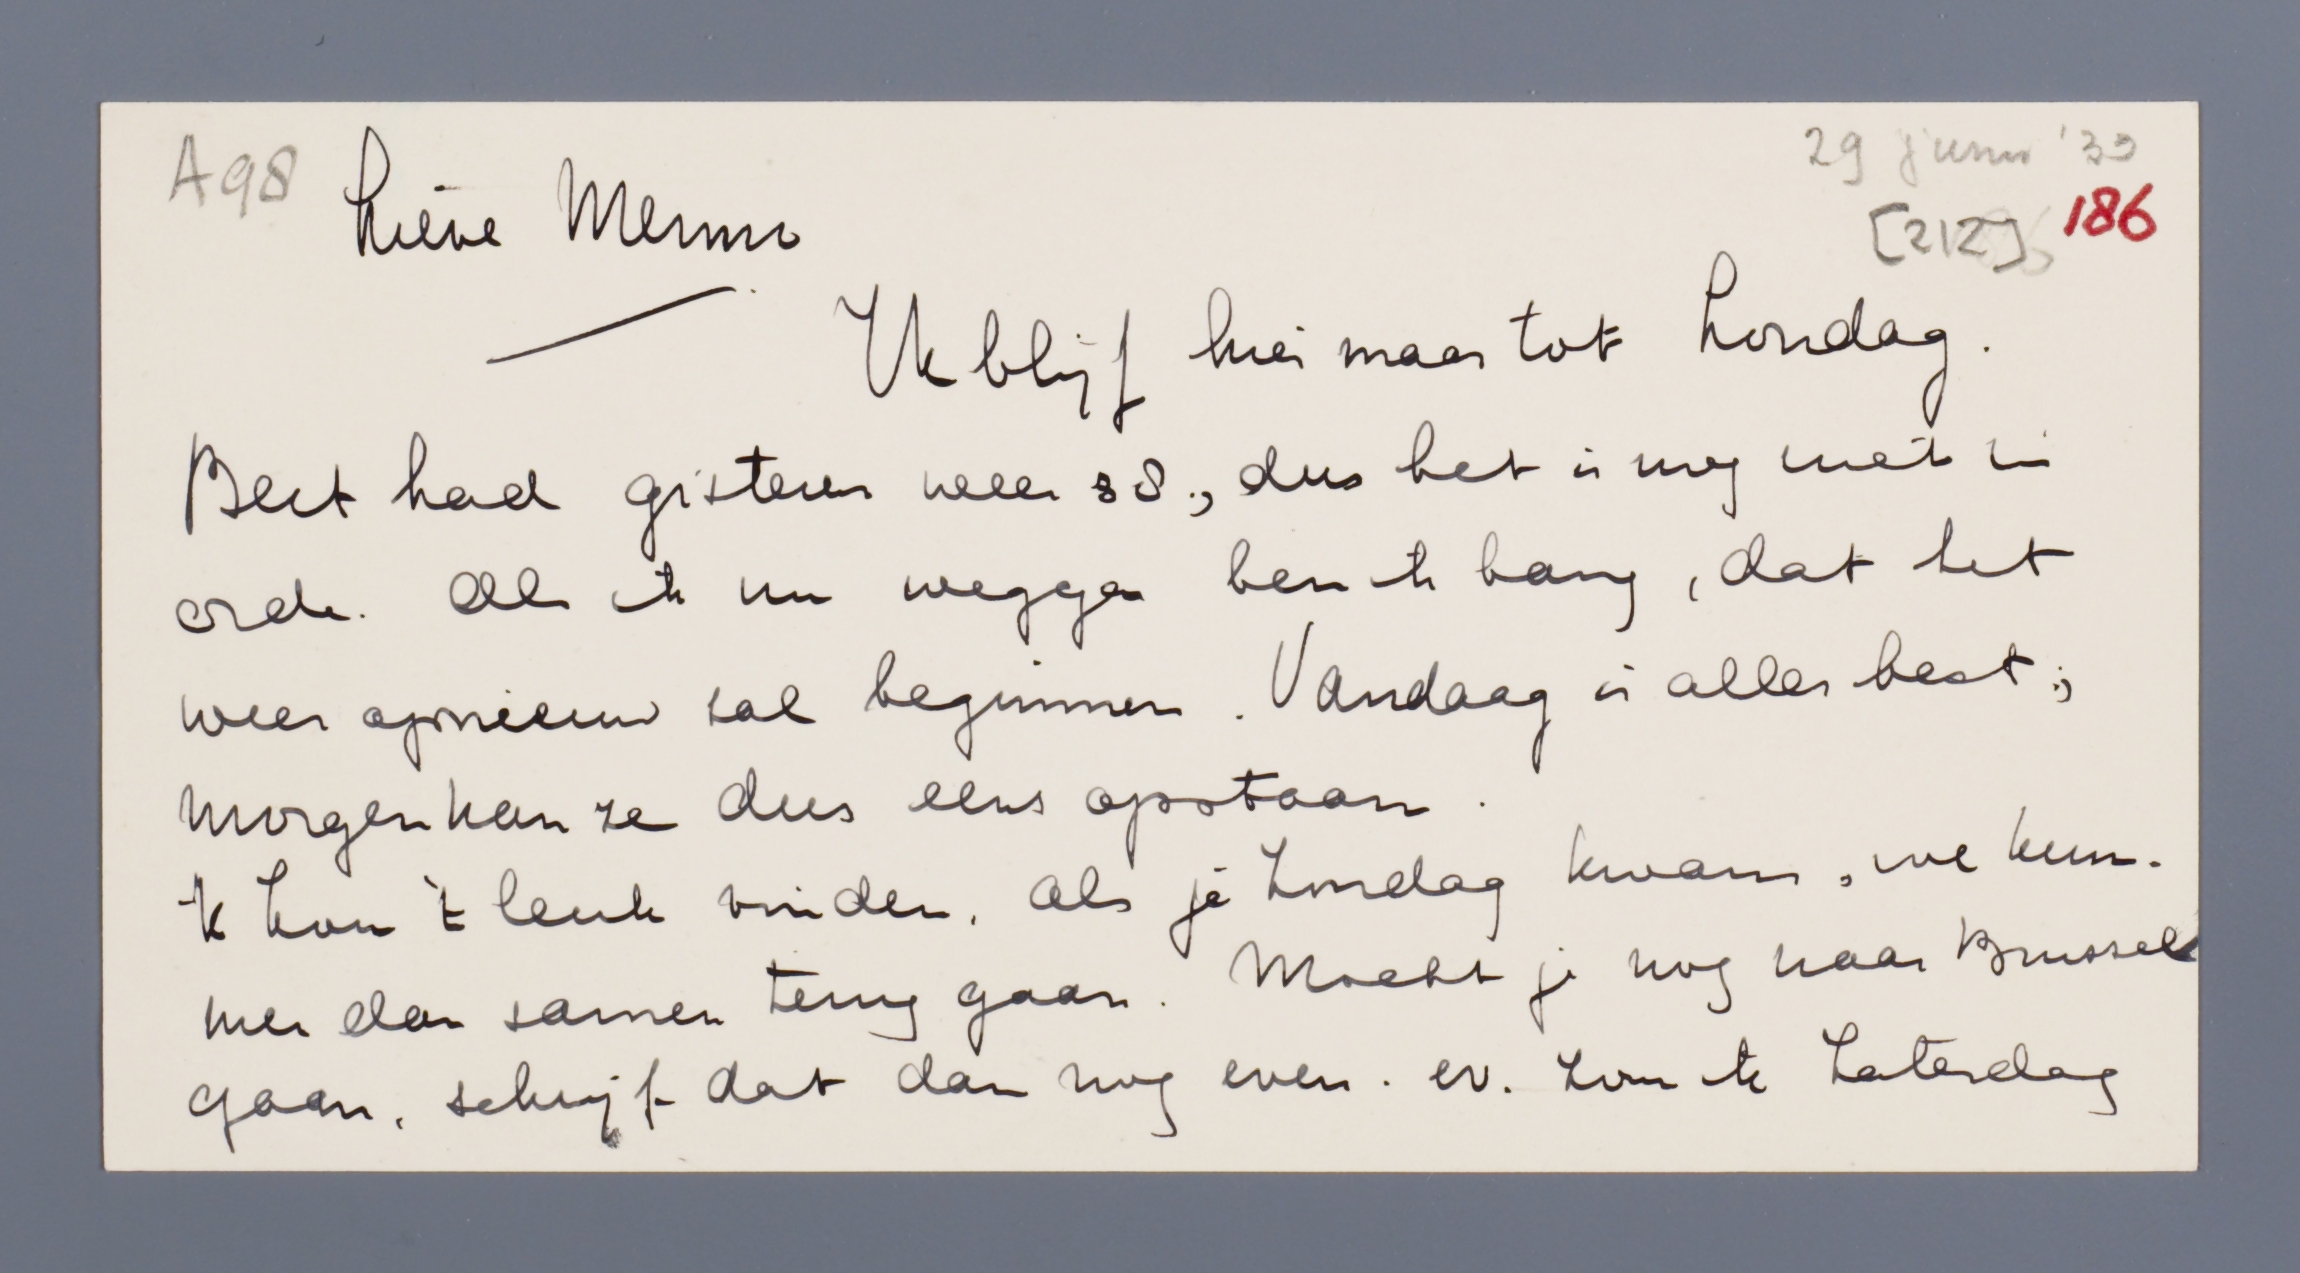 A98
29 juni '33
[212] 186
Lieve Menno
Ik blijf hier maar tot Zondag.
Bert had gisteren weer 38., dus het is nog niet in
orde. Als ik nu wegga ben ik bang, dat het
weer opnieuw zal beginnen. Vandaag is alles best;
morgen kan ze dus eens opstaan.
Ik zou 't leuk vinden, als je Zondag kwam, we kun-
nen dan samen terug gaan. Mocht je nog naar Brussel
gaan, schrijf dat dan nog even. ev. zou ik Zaterdag